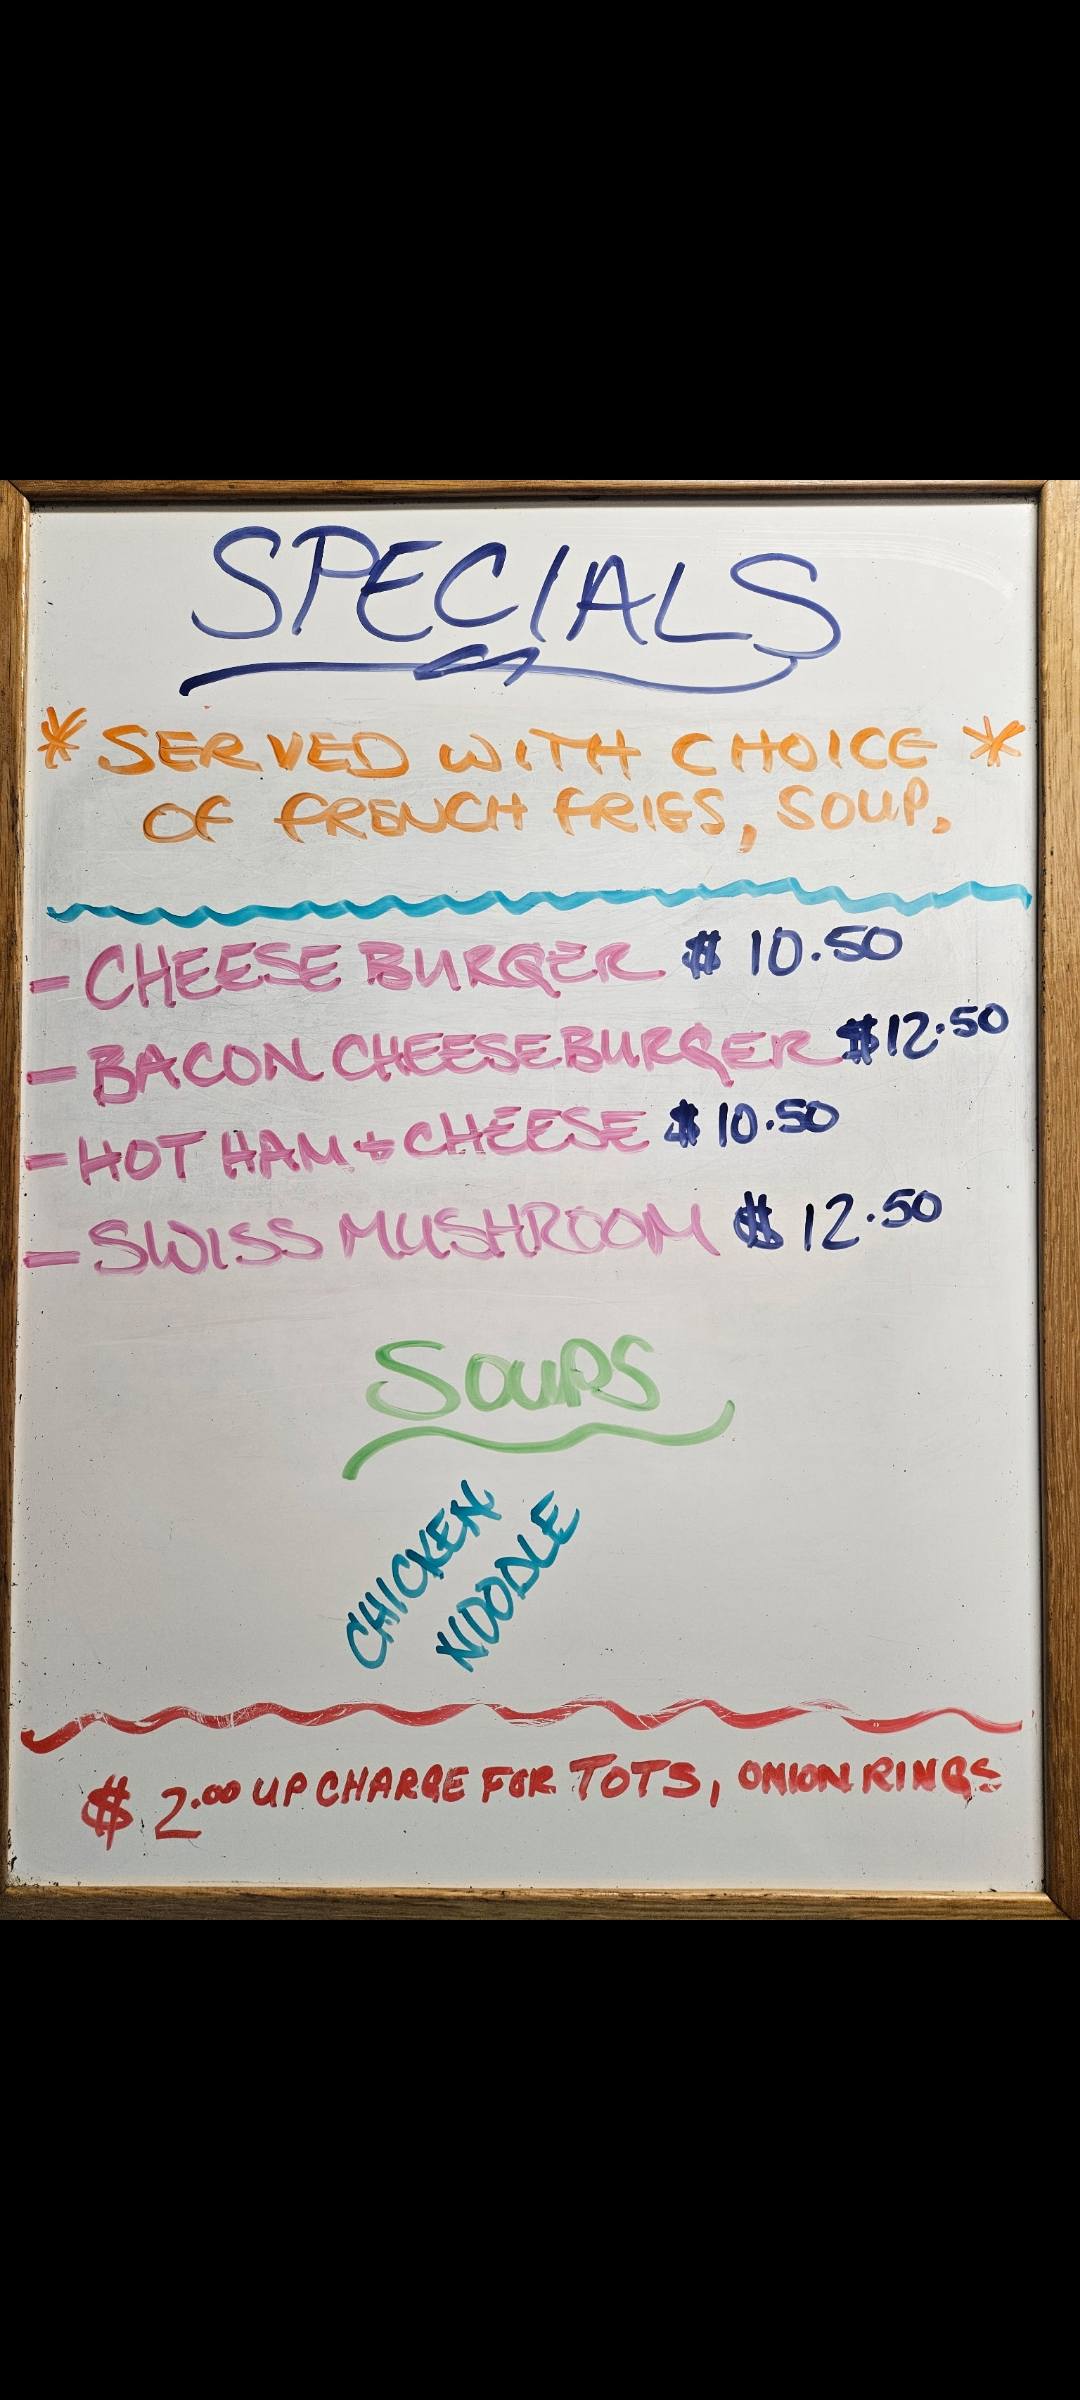 SPECIALS
* SERVED WITH CHOICE *
OF FRENCH FRIES, SOUP,
- CHEESE BURGER $ 10.50
- BACON CHEESEBURGER $12.50
- HOT HAM & CHEESE $ 10.50
- SWISS MUSHROOM $ 12.50
SOUPS
CHICKEN
NOODLE
$ 2.00 UP CHARGE FOR TOTS, ONION RINGS